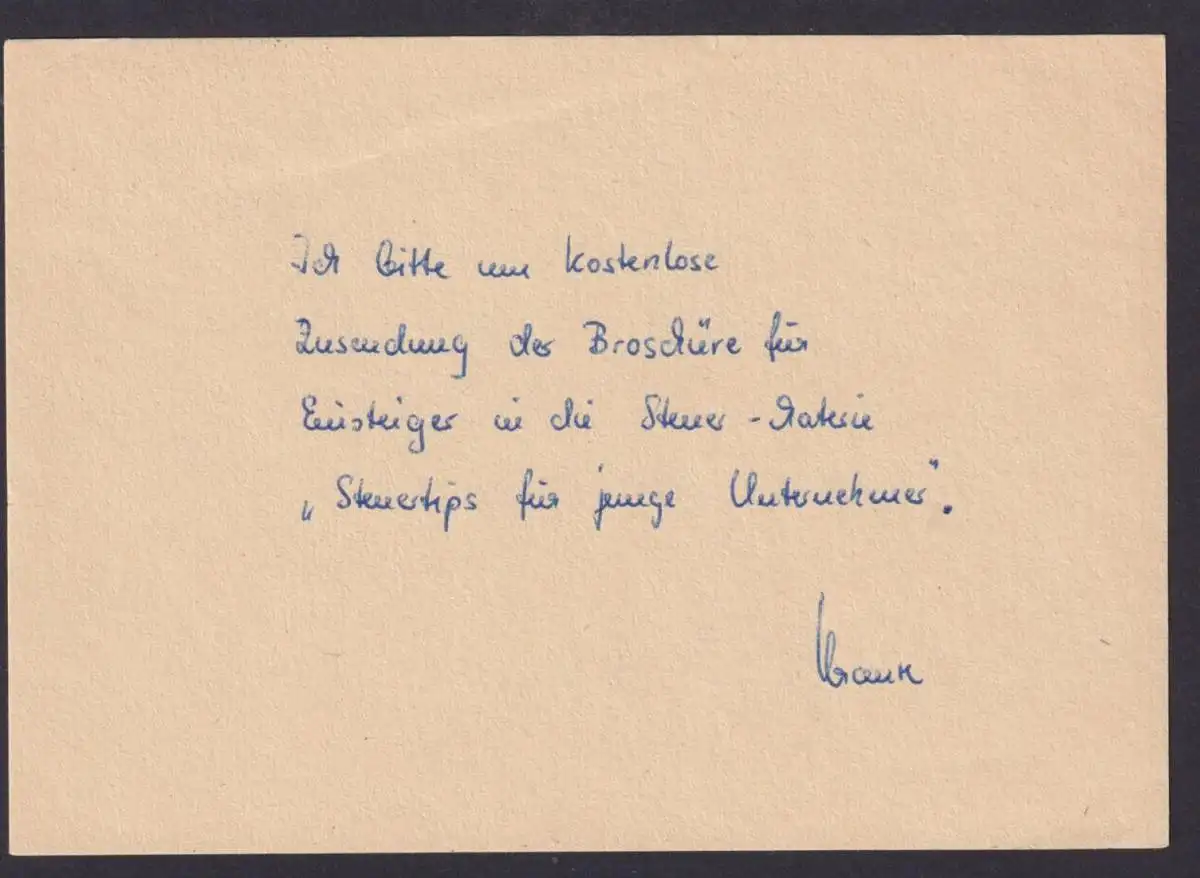 Ich bitte um kostenlose
Zusendung der Broschüre für
Einsteiger in die Steuer-Materie
„Steuertips für junge Unternehmer".